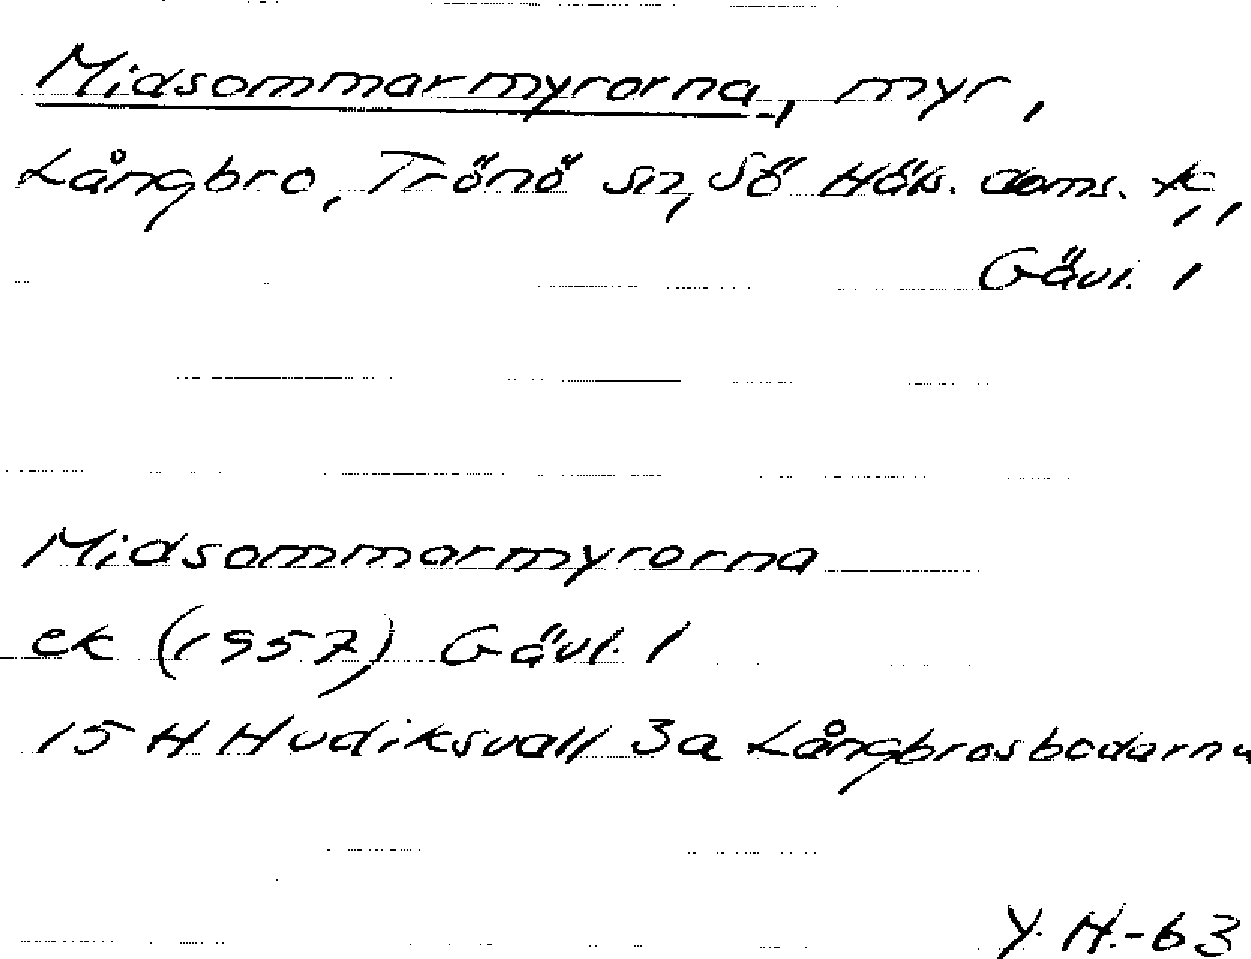 Midsommarmyrorna, myr,
Långbro, Trönö sn, Sö Häls. doms. k,,
Gävl. l
Midsommarmyrorna
ek (1957) Gävl. l
15 H Hudiksvall 3a Långbrosbodarna
Y. H.-63